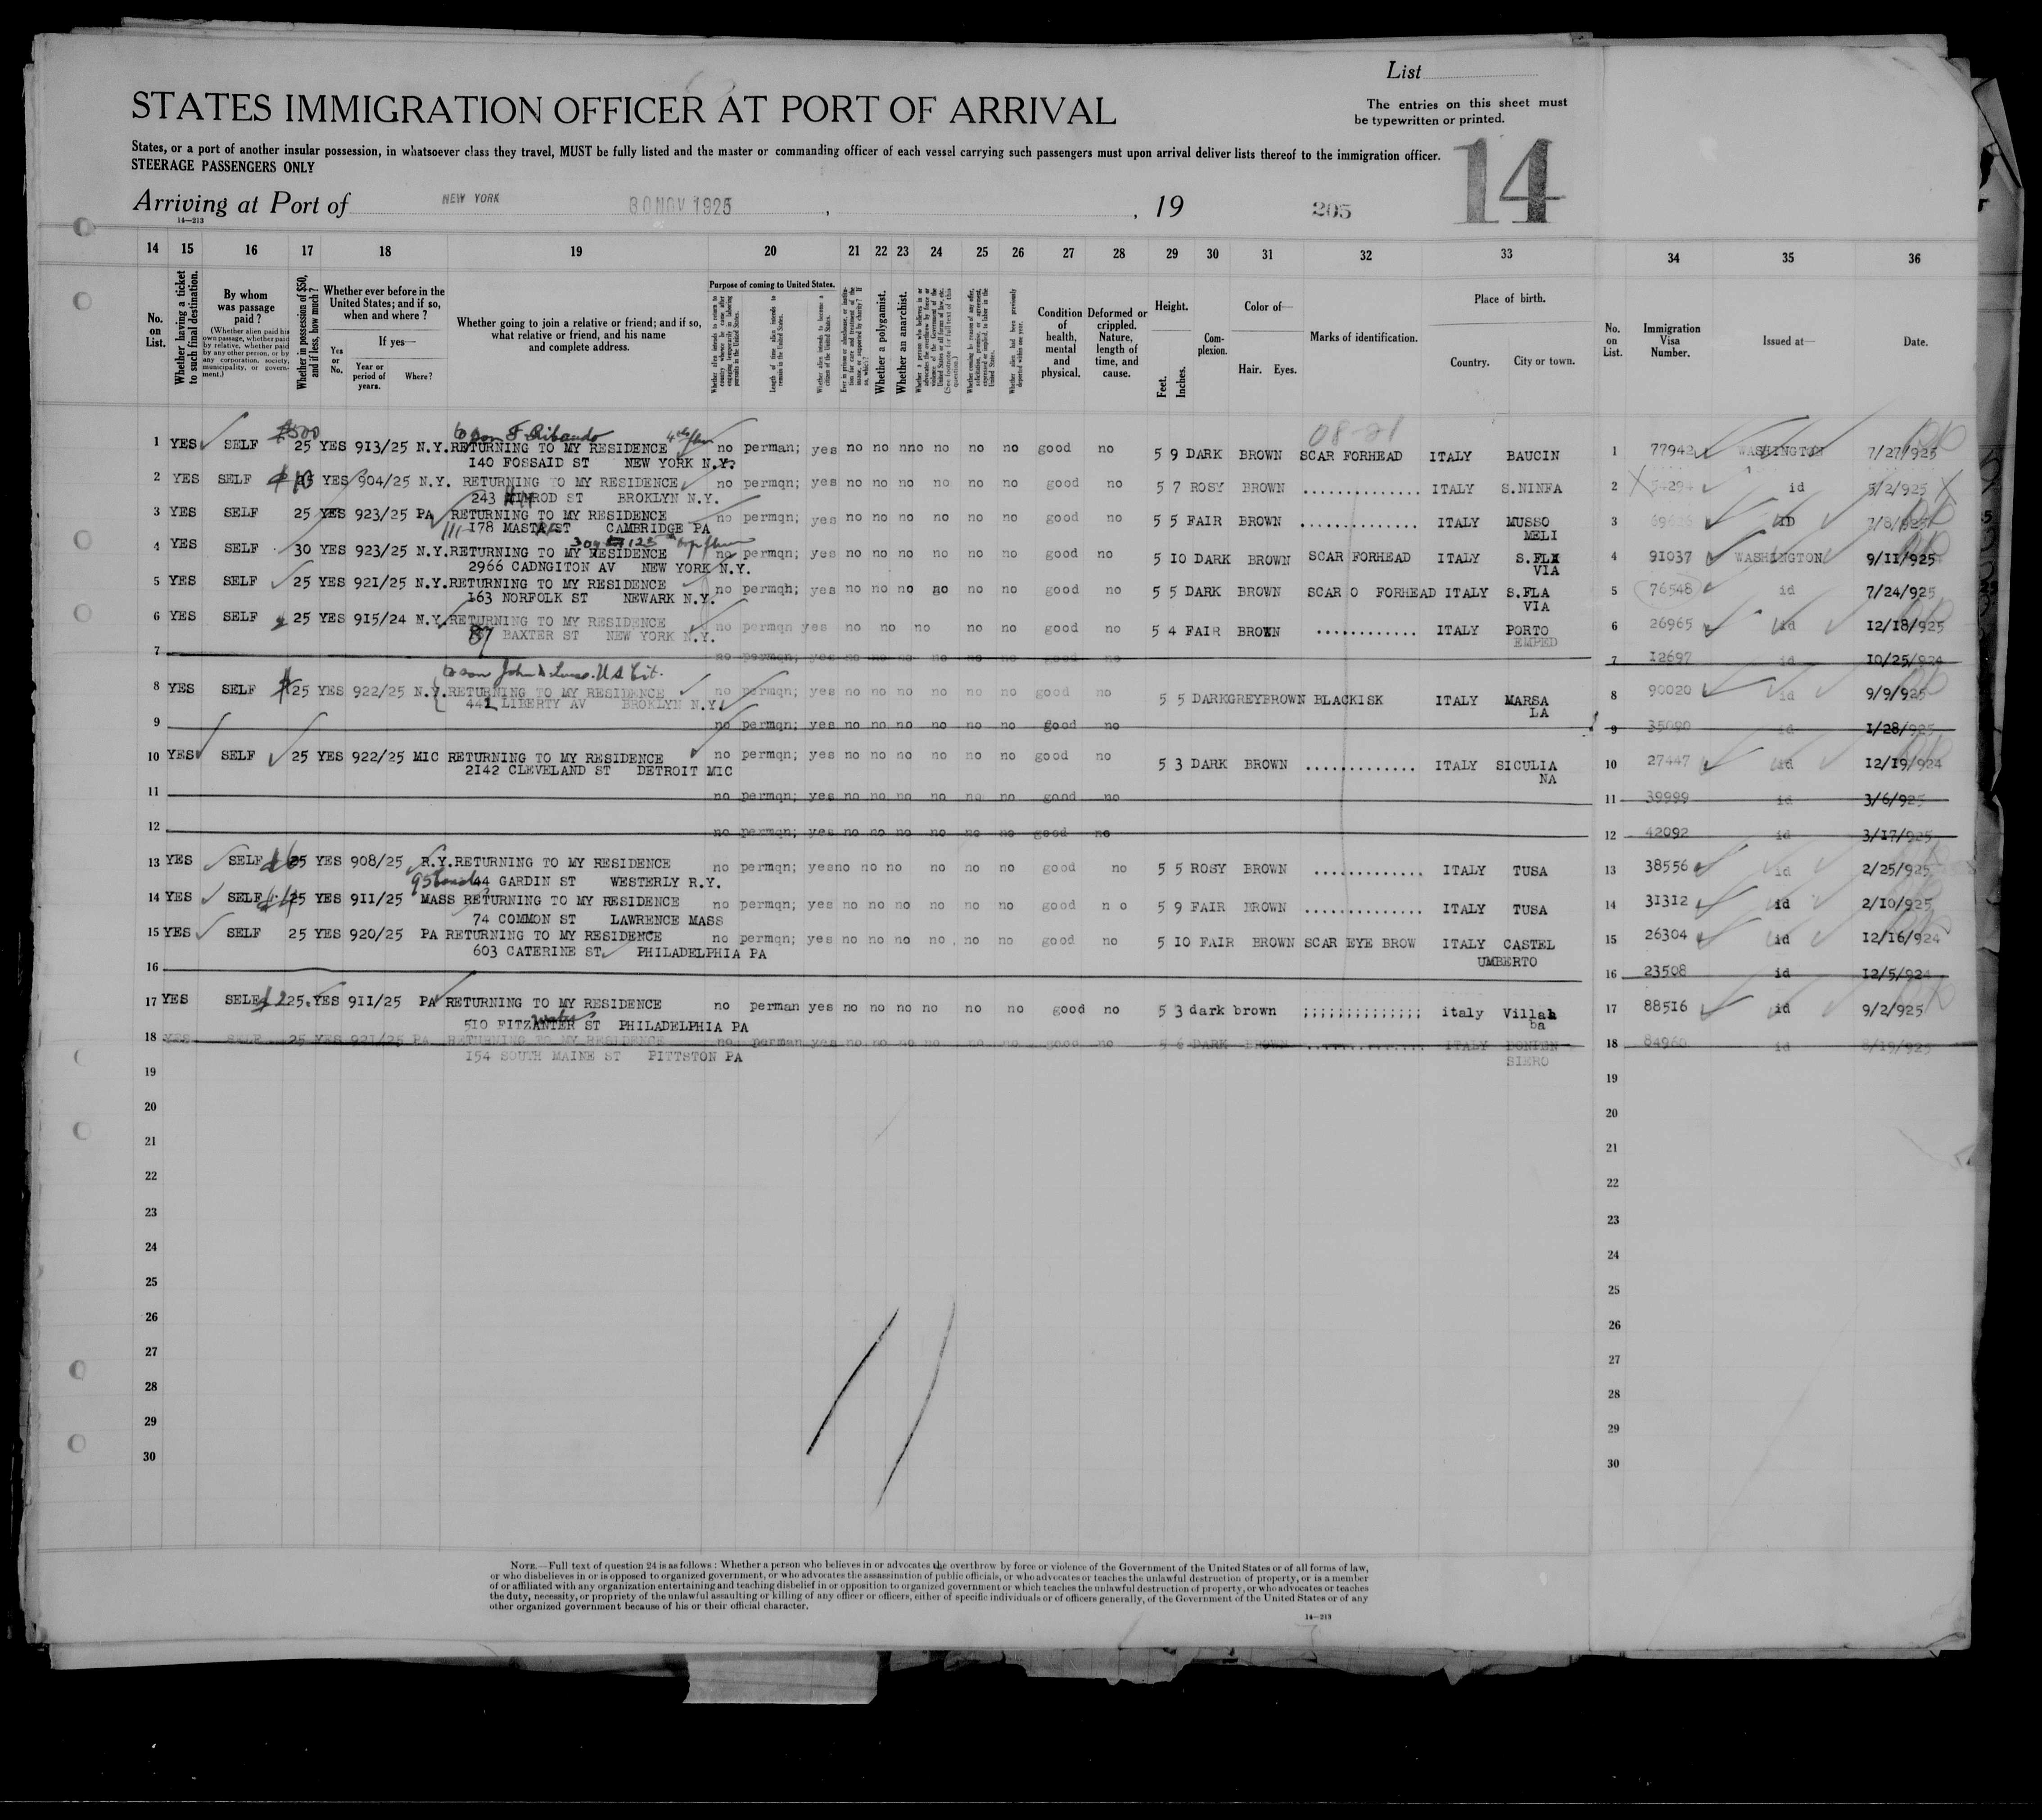 List
STATES IMMIGRATION OFFICER AT PORT OF ARRIVAL
The entries on this sheet must
be typewritten or printed.
States, or a port of another insular possession, in whatsoever class they travel, MUST be fully listed and the master or commanding officer of each vessel carrying such passengers must upon arrival deliver lists thereof to the immigration officer.
STEERAGE PASSENGERS ONLY
14
Arriving at Port of NEW YORK 30 NOV 1925 , , 19 205
14—213
14 15 16 17 18 19 20 21 22 23 24 25 26 27 28 29 30 31 32 33 34 35 36
No. on List.
Whether having a ticket to such final destination.
By whom was passage paid?
(Whether alien paid his own passage, whether paid by relative, whether paid by any other person, or by any corporation, society, municipality, or government.)
Whether in possession of $50, and if less, how much?
Whether ever before in the United States; and if so, when and where?
Yes or No.
If yes—
Year or period of years.
Where?
Whether going to join a relative or friend; and if so, what relative or friend, and his name and complete address.
Purpose of coming to United States.
Length of time alien intends to remain in the United States.
Whether alien intends to become a citizen of the United States.
Whether a polygamist.
Whether an anarchist.
Condition of health, mental and physical.
Deformed or crippled. Nature, length of time, and cause.
Height.
Feet. Inches.
Complexion.
Color of—
Hair. Eyes.
Marks of identification.
Place of birth.
Country. City or town.
No. on List.
Immigration Visa Number.
Issued at—
Date.
08-21
to son F Ribaudo
1 YES SELF 25 YES 913/25 N.Y. RETURNING TO MY RESIDENCE no perman; yes no no nno no no no good no 5 9 DARK BROWN SCAR FORHEAD ITALY BAUCIN 1 77942 WASHINGTON 7/27/925
140 FOSSAID ST NEW YORK N.Y.
2 YES SELF YES 904/25 N.Y. RETURNING TO MY RESIDENCE no permqn; yes no no no no no no good no 5 7 ROSY BROWN .............. ITALY S.NINFA 2 id 5/2/925
243 ROD ST BROKLYN N.Y.
3 YES SELF 25 YES 923/25 PA RETURNING TO MY RESIDENCE no permqn; yes no no no no no no good no 5 5 FAIR BROWN ............. ITALY MUSSO 3 ID 7/8/925
178 ST CAMBRIDGE PA MELI
4 YES SELF 30 YES 923/25 N.Y. RETURNING TO MY RESIDENCE no permqn; yes no no no no no no good no 5 10 DARK BROWN SCAR FORHEAD ITALY S.FLA 4 91037 WASHINGTON 9/11/925
2966 CADNGITON AV NEW YORK N.Y. VIA
5 YES SELF 25 YES 921/25 N.Y. RETURNING TO MY RESIDENCE no permqn; yes no no no no no no good no 5 5 DARK BROWN SCAR O FORHEAD ITALY S.FLA 5 76548 id 7/24/925
163 NORFOLK ST NEWARK N.Y. VIA
6 YES SELF 25 YES 915/24 N.Y. RETURNING TO MY RESIDENCE no permqn yes no no no no no good no 5 4 FAIR BROWN ............ ITALY PORTO 6 26965 id 12/18/925
87 BAXTER ST NEW YORK N.Y. EMPED
7 no permqn; yes no no no no no no good no 7 12697 id 10/25/924
to son John U.S. Cit.
8 YES SELF 25 YES 922/25 N.Y. RETURNING TO MY RESIDENCE no permqn; yes no no no no no no good no 5 5 DARK GREY BROWN BLACKISK ITALY MARSA 8 90020 id 9/9/925
441 LIBERTY AV BROKLYN N.Y. LA
9 no permqn; yes no no no no no no good no 9 35090 id 1/28/925
10 YES SELF 25 YES 922/25 MIC RETURNING TO MY RESIDENCE no permqn; yes no no no no no no good no 5 3 DARK BROWN ............. ITALY SICULIA 10 27447 id 12/19/924
2142 CLEVELAND ST DETROIT MIC NA
11 no permqn; yes no no no no no no good no 11 39999 id 3/6/925
12 no permqn; yes no no no no no no good no 12 42092 id 3/17/925
13 YES SELF 25 YES 908/25 R.Y. RETURNING TO MY RESIDENCE no permqn; yes no no no no no no good no 5 5 ROSY BROWN ............. ITALY TUSA 13 38556 id 2/25/925
44 GARDIN ST WESTERLY R.Y.
14 YES SELF 25 YES 911/25 MASS RETURNING TO MY RESIDENCE no permqn; yes no no no no no no good n o 5 9 FAIR BROWN .............. ITALY TUSA 14 31312 id 2/10/925
74 COMMON ST LAWRENCE MASS
15 YES SELF 25 YES 920/25 PA RETURNING TO MY RESIDENCE no permqn; yes no no no no no no good no 5 10 FAIR BROWN SCAR EYE BROW ITALY CASTEL 15 26304 id 12/16/924
603 CATERINE ST PHILADELPHIA PA UMBERTO
16 16 23508 id 12/5/924
17 YES SELF 25 YES 911/25 PA RETURNING TO MY RESIDENCE no perman yes no no no no no no good no 5 3 dark brown ;;;;;;;;;;;;;; italy Villal 17 88516 id 9/2/925
510 FITZ ST PHILADELPHIA PA ba
18 YES SELF 25 YES 921/25 PA RETURNING TO MY RESIDENCE no perman yes no no no no no no good no 5 6 DARK BROWN .............. ITALY BONPEN 18 84960 id 8/19/925
154 SOUTH MAINE ST PITTSTON PA SIERO
19 19
20 20
21 21
22 22
23 23
24 24
25 25
26 26
27 27
28 28
29 29
30 30
NOTE.—Full text of question 24 is as follows: Whether a person who believes in or advocates the overthrow by force or violence of the Government of the United States or of all forms of law,
or who disbelieves in or is opposed to organized government, or who advocates the assassination of public officials, or who advocates or teaches the unlawful destruction of property, or is a member
of or affiliated with any organization entertaining and teaching disbelief in or opposition to organized government or which teaches the unlawful destruction of property, or who advocates or teaches
the duty, necessity, or propriety of the unlawful assaulting or killing of any officer or officers, either of specific individuals or of officers generally, of the Government of the United States or of any
other organized government because of his or their official character.
14—213